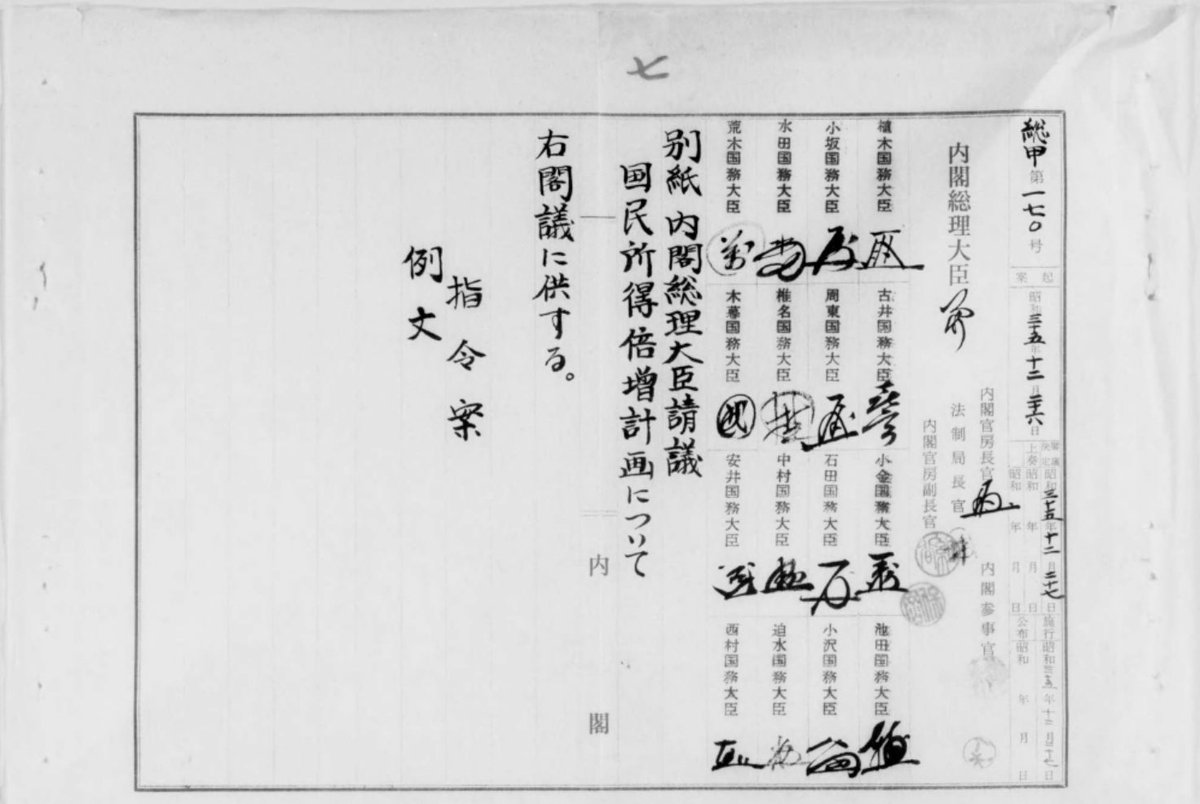 七
総甲第一七〇号
起案 昭和三十五年十二月二十六日
閣議決定 昭和三十五年十二月二十七日
上奏 昭和 年 月 日
昭和 年 月 日
施行 昭和三五年十二月二十七日
公布 昭和 年 月 日
内閣総理大臣
内閣官房長官
法制局長官
内閣官房副長官
内閣参事官
植木国務大臣
古井国務大臣
小金国務大臣
池田国務大臣
小坂国務大臣
周東国務大臣
石田国務大臣
小沢国務大臣
水田国務大臣
椎名国務大臣
中村国務大臣
迫水国務大臣
荒木国務大臣
木暮国務大臣
安井国務大臣
西村国務大臣
別紙 内閣総理大臣請議
国民所得倍増計画について
右閣議に供する。
指令案
例文
内閣